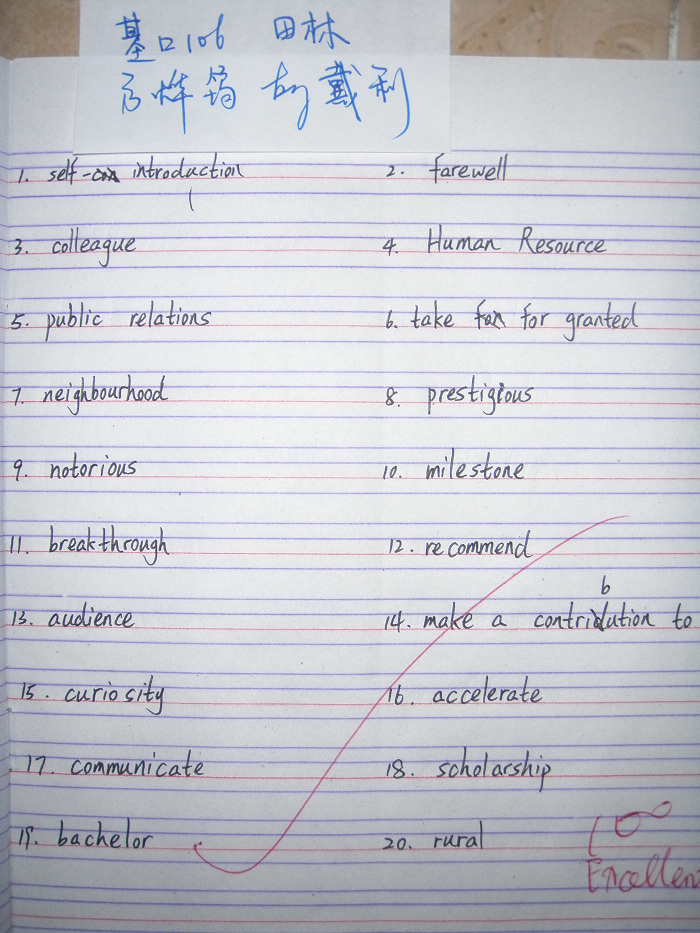 基口106 田林
戴利
1. self- introduction
2. farewell
3. colleague
4. Human Resource
5. public relations
6. take for granted
7. neighbourhood
8. prestigious
9. notorious
10. milestone
11. breakthrough
12. recommend
13. audience
14. make a contribution to
15. curiosity
16. accelerate
17. communicate
18. scholarship
19. bachelor
20. rural
100
Excellen